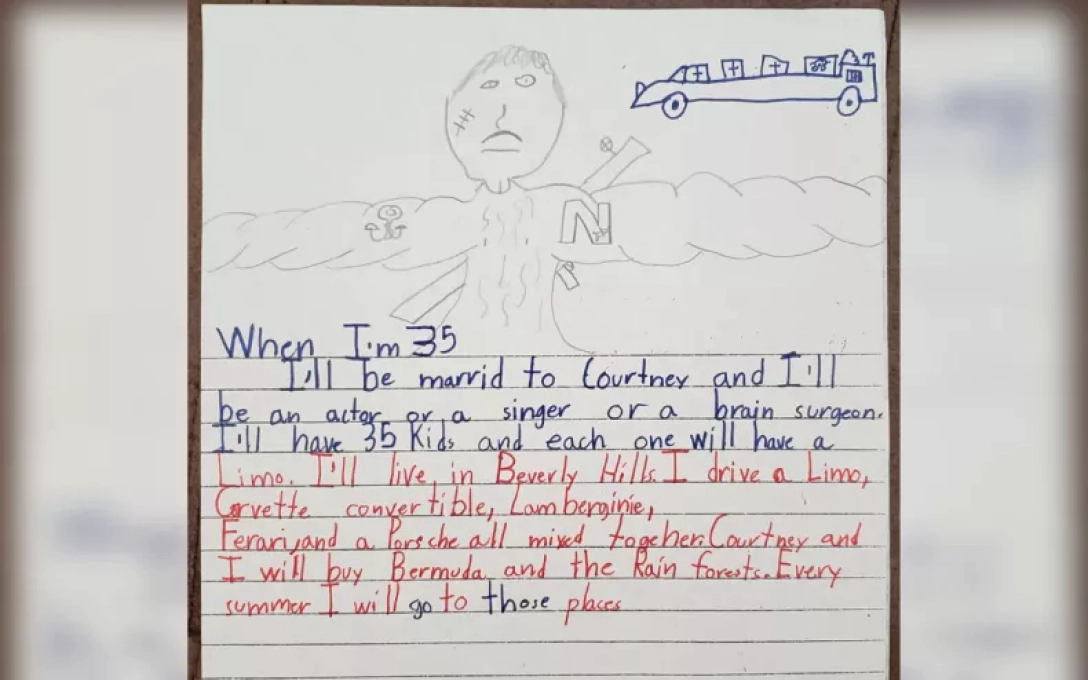 N
When I'm 35
I'll be marrid to Courtney and I'll
be an actor or a singer or a brain surgeon.
I'll have 35 Kids and each one will have a
Limo. I'll live in Beverly Hills. I drive a Limo,
Corvette convertible, Lamberginie,
Ferari, and a Porsche all mixed together. Courtney and
I will buy Bermuda and the Rain forests. Every
summer I will go to those places